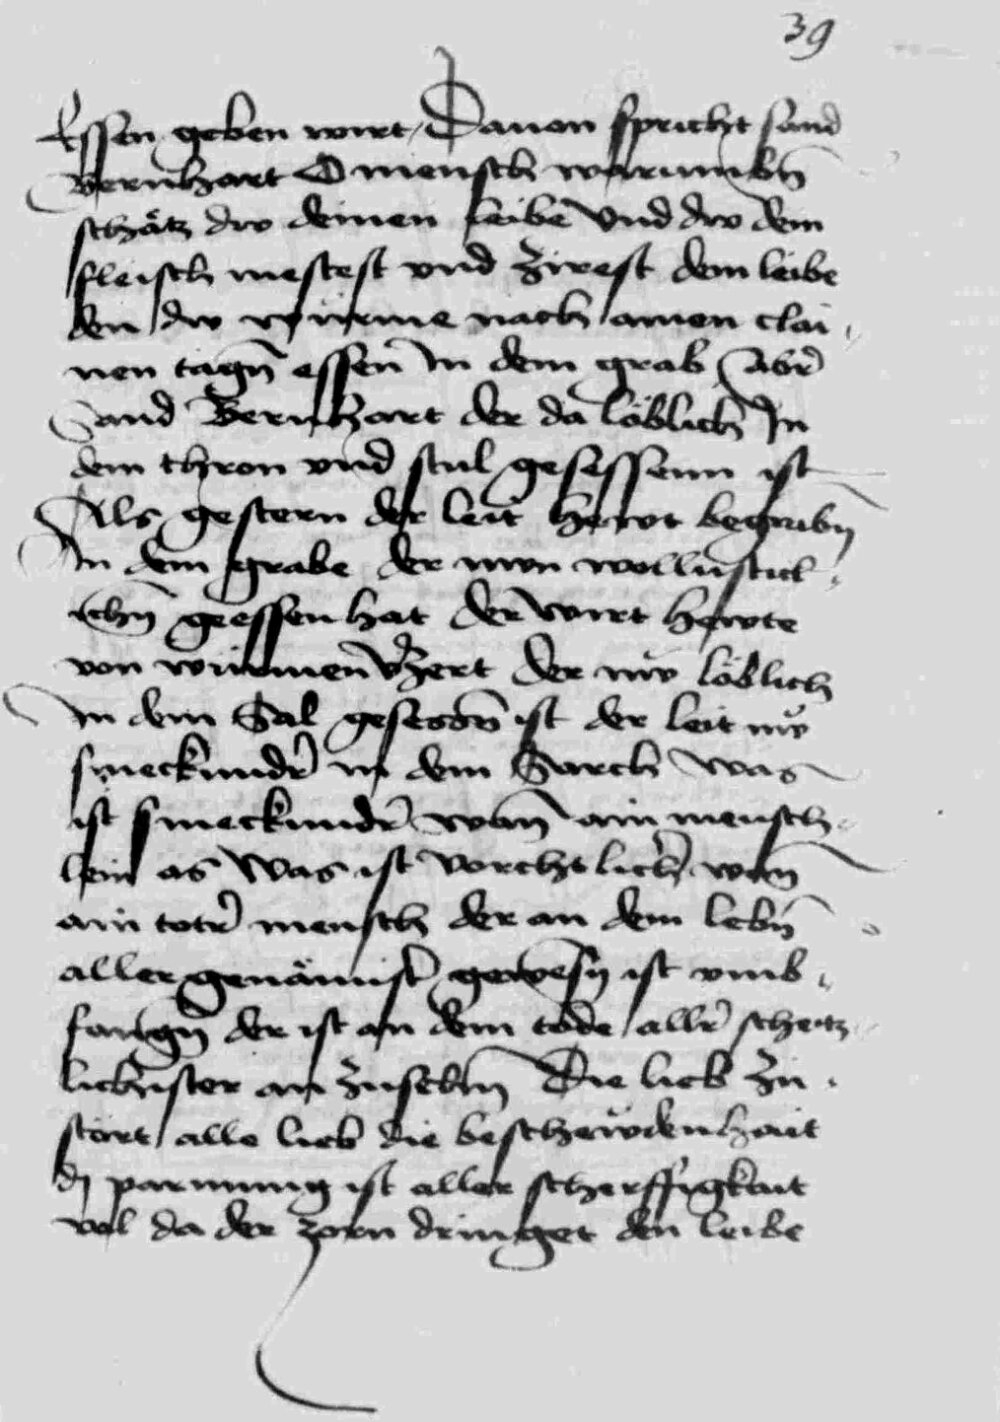 39
Essen geben wirt Dauon spricht sand
Bernhart O mensch warumbn
schätz dw deinen leibe Vnd dw dem
fleisch mestest vnd zirest dem leibe
den dw würme nach ainen clai
nen tagn essen in dem grab aber
Sand Bernhart der da löblich In
dem thron vnd stul gesessenn ist
Als gestern der leit hewt begrabn
In dem grabe der nwn wollustick
ichn geessen hat der wirt hewte
von würmen verzert der nw löblich
In dem Sal gesessn ist der leit nw
smeckunder in dem Sarch was
ist smeckunder wan ain mensch
lein as Was ist vorchtlicher wan
ain toter mensch der an dem lebn
aller genämist gewesn ist vmb
fangn der ist an dem tode aller scheitz
lichister an zusehn Die lieb zu
stört alle lieb die beschewdenhait
di parmung ist aller scherffigkait
vol da der zorn dringet den leibe